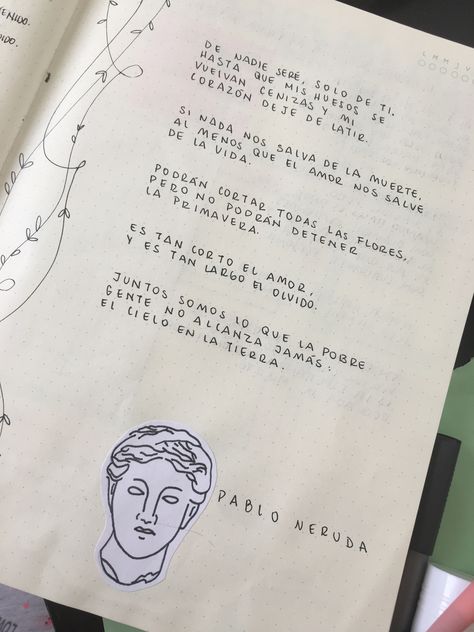 DE NADIE SERÉ, SOLO DE TI.
HASTA QUE MIS HUESOS SE
VUELVAN CENIZAS Y MI
CORAZÓN DEJE DE LATIR.
SI NADA NOS SALVA DE LA MUERTE,
AL MENOS QUE EL AMOR NOS SALVE
DE LA VIDA.
PODRÁN CORTAR TODAS LAS FLORES,
PERO NO PODRÁN DETENER
LA PRIMAVERA.
ES TAN CORTO EL AMOR,
Y ES TAN LARGO EL OLVIDO.
JUNTOS SOMOS LO QUE LA POBRE
GENTE NO ALCANZA JAMÁS:
EL CIELO EN LA TIERRA.
PABLO NERUDA